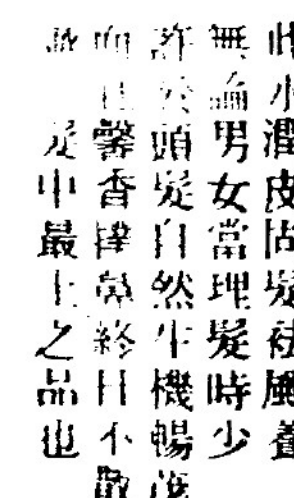 此小潤皮固髮祛風養
無論男女當理髮時少
許於頭髮自然生機暢茂
而且馨香撲鼻終日不散
髮中最上之品也